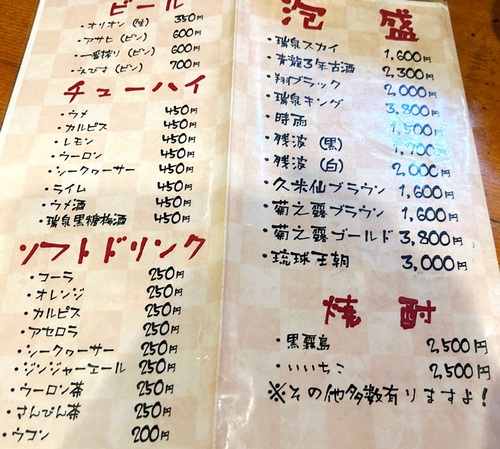 ビール
・オリオン（生） 350円
・アサヒ（ビン） 600円
・一番搾り（ビン） 600円
・えびす（ビン） 700円
チューハイ
・ウメ 450円
・カルピス 450円
・レモン 450円
・ウーロン 450円
・シークヮーサー 450円
・ライム 450円
・ウメ酒 450円
・瑞泉黒糖梅酒 450円
ソフトドリンク
・コーラ 250円
・オレンジ 250円
・カルピス 250円
・アセロラ 250円
・シークヮーサー 250円
・ジンジャーエール 250円
・ウーロン茶 250円
・さんぴん茶 250円
・ウコン 200円
泡盛
・瑞泉スカイ 1,600円
・青龍3年古酒 2,300円
・翔ブラック 2,000円
・瑞泉キング 3,800円
・時雨 1,500円
・残波（黒） 1,700円
・残波（白） 2,000円
・久米仙ブラウン 1,600円
・菊之露ブラウン 1,600円
・菊之露ゴールド 3,800円
・琉球王朝 3,000円
焼酎
・黒霧島 2,500円
・いいちこ 2,500円
※その他多数有りますよ！